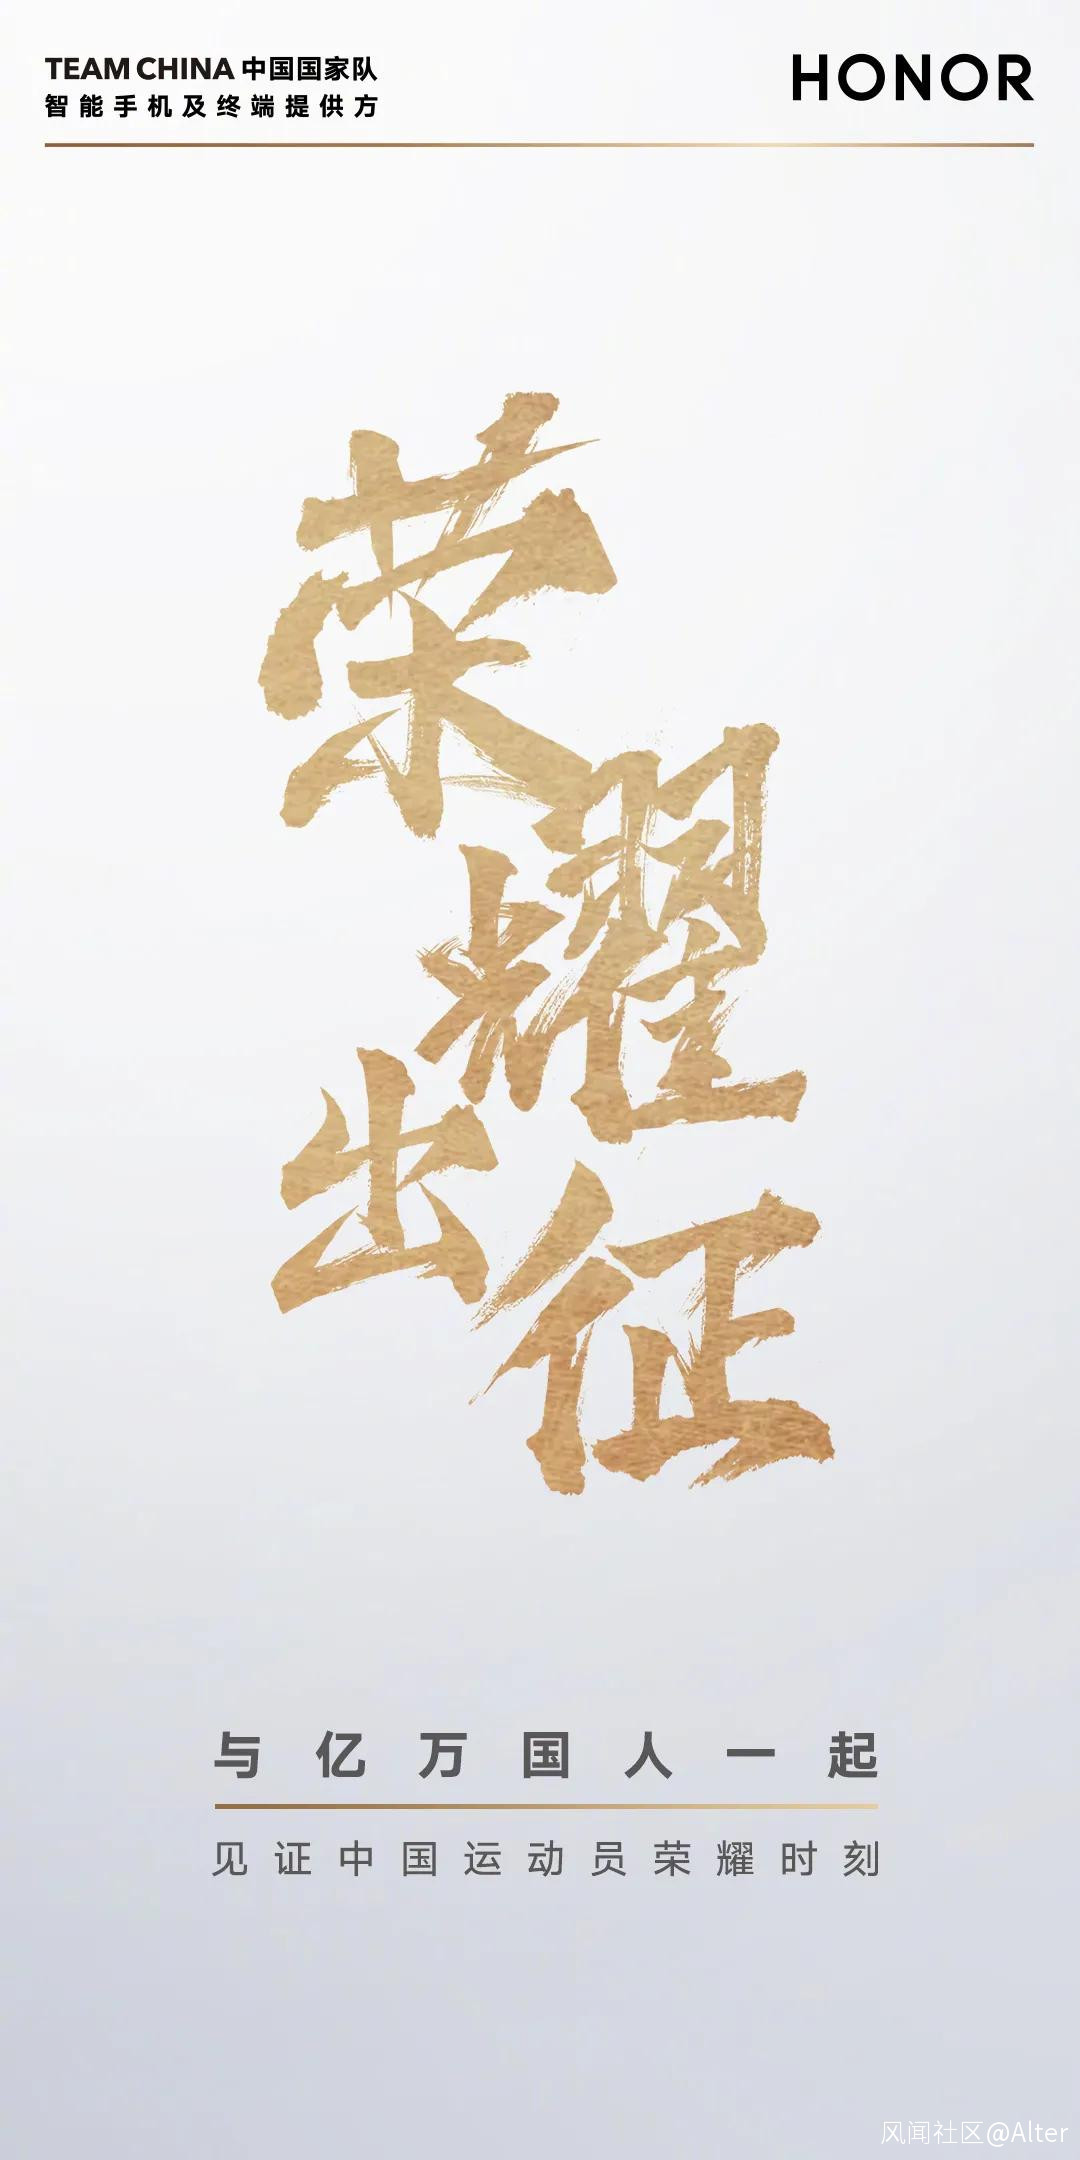 TEAM CHINA 中国国家队
智能手机及终端提供方
HONOR
荣耀
出征
与亿万国人一起
见证中国运动员荣耀时刻
风闻社区@Alter